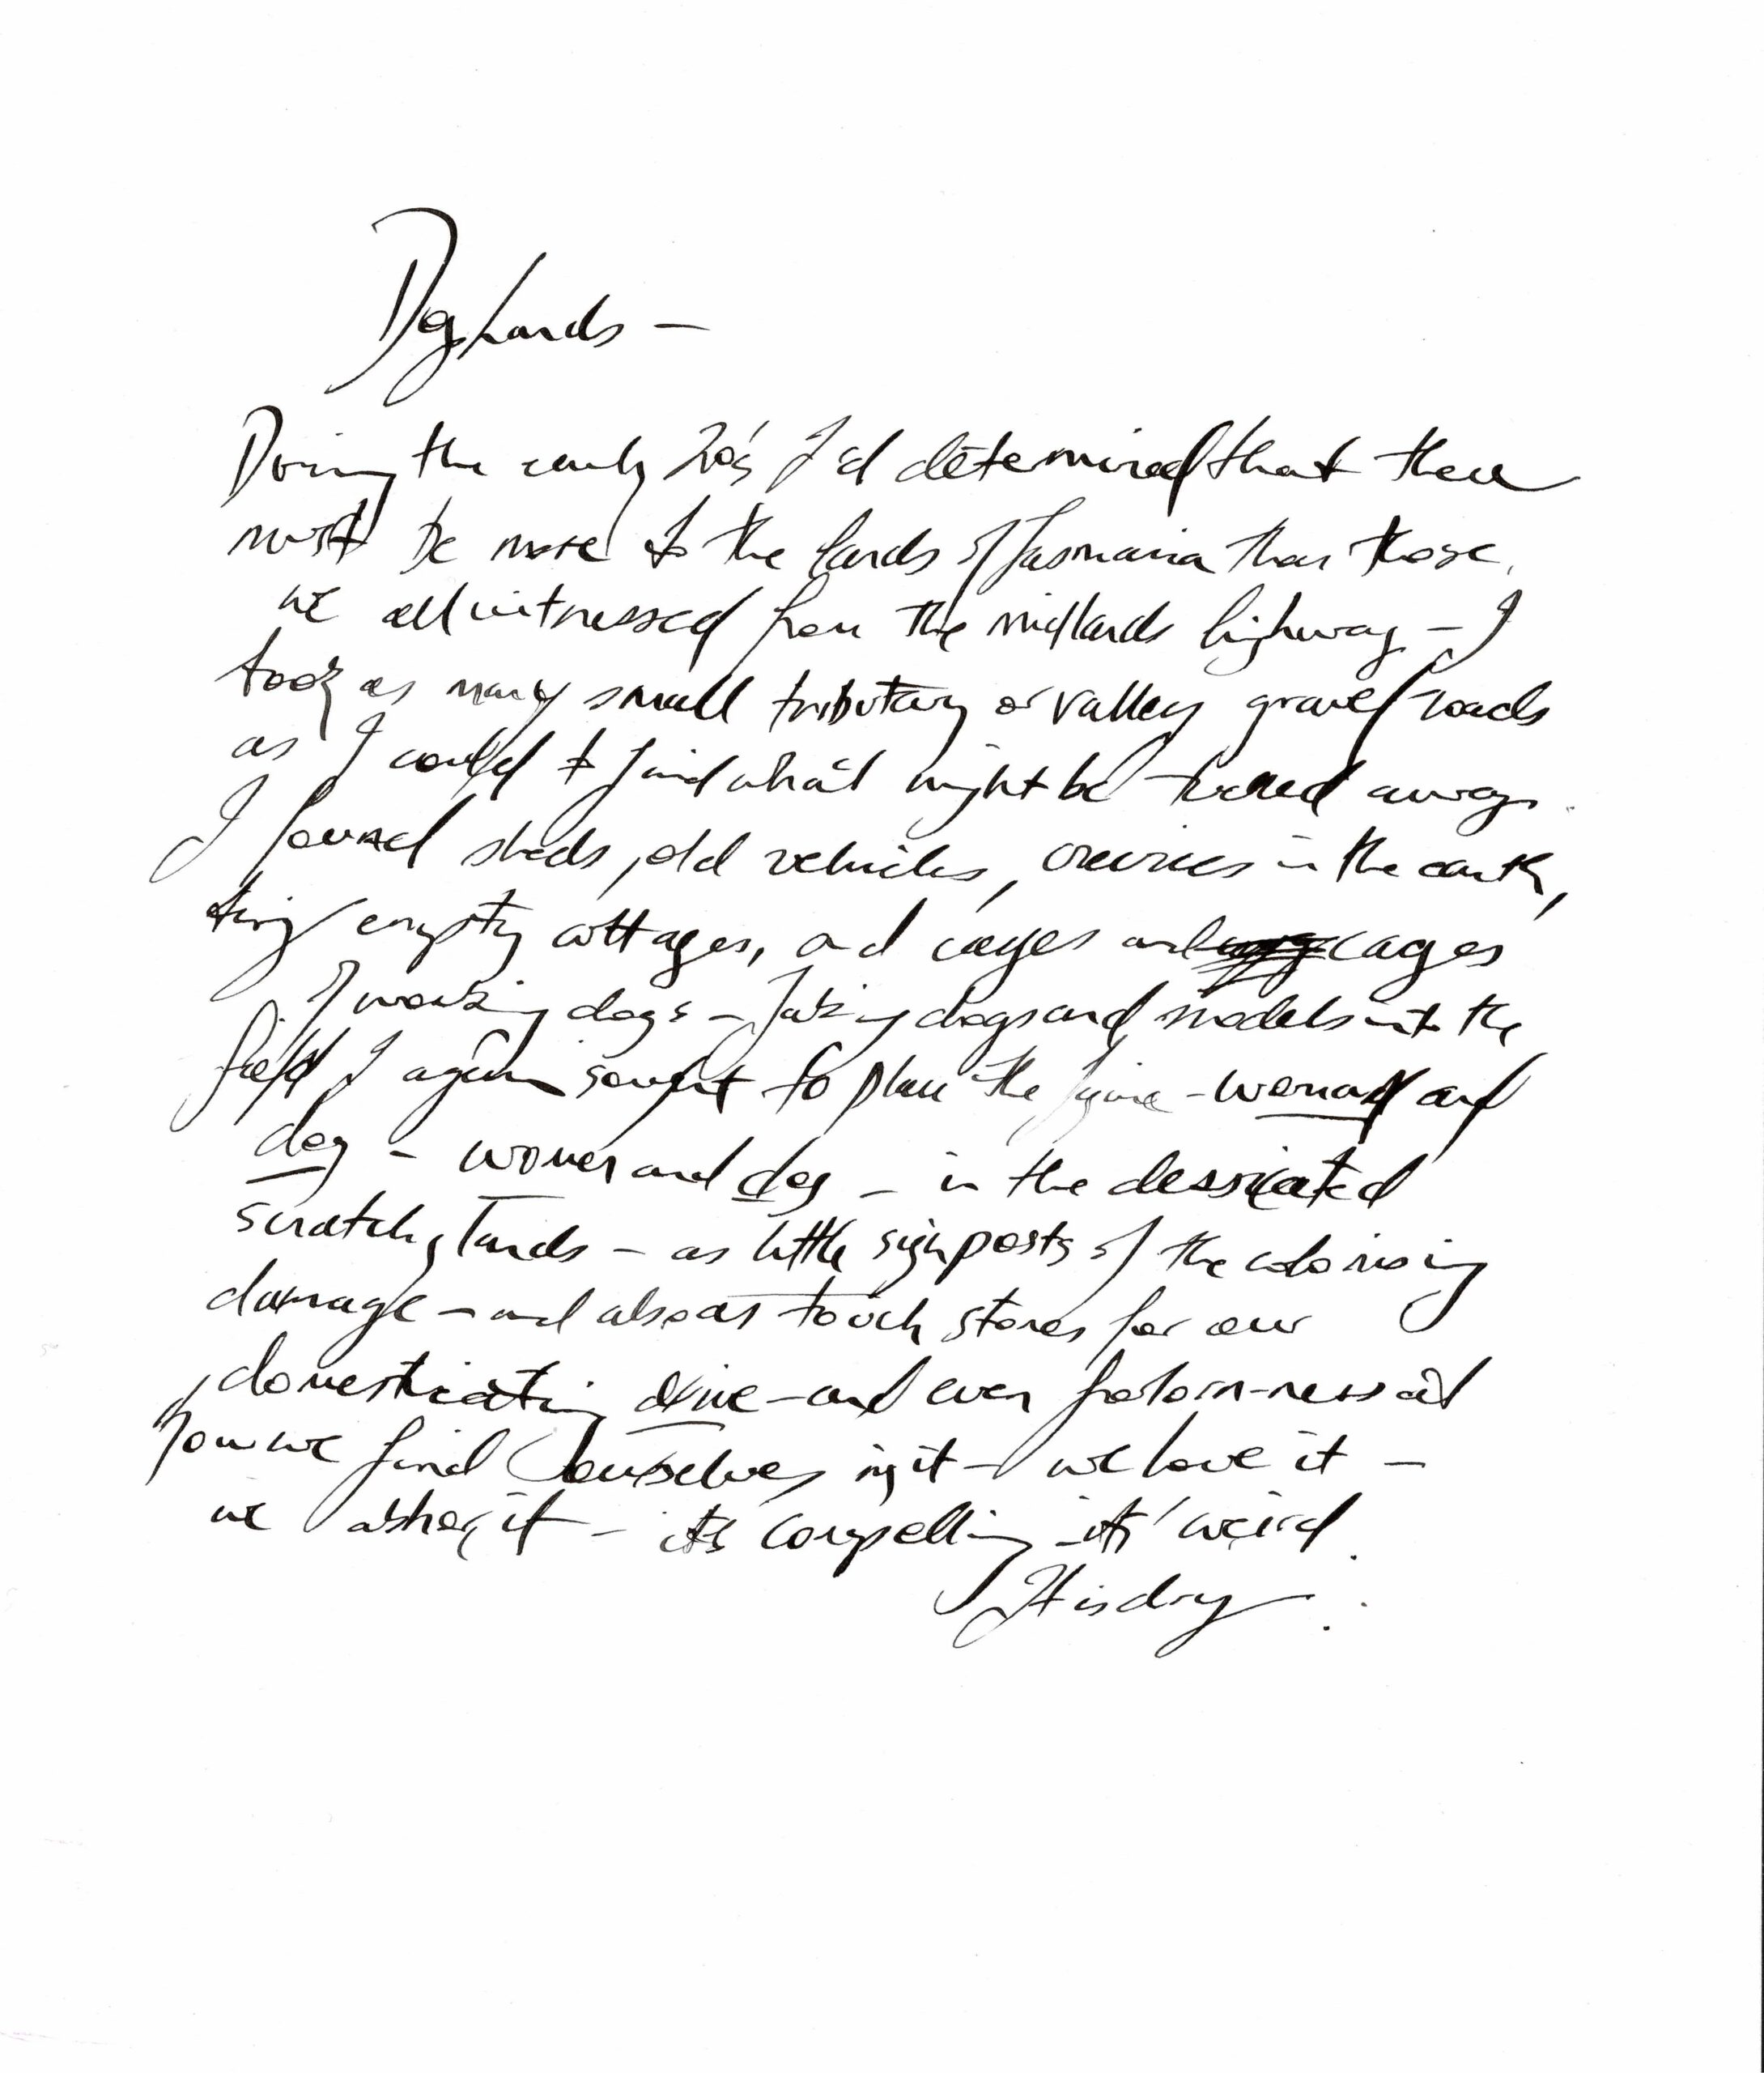 Doglands –
During the early 20's I'd determined that there
must be more to the lands of Tasmania than those
we all witnessed from the midlands highway – I
took as many small tributary or valley gravel roads
as I could to find what might be tucked away.
I found sheds, old vehicles, crevices in the earth,
tiny empty cottages, and cages and cages
of working dogs – Taking dogs and models into the
field I again sought to place the figure – woman and
dog – women and dog – in the dessicated
scratchy lands – as little signposts of the colonising
damage – and also as touch stones for our
domesticating drive – and even forlorn-ness at
how we find ourselves in it – we love it –
we abhor it – it's compelling – it's weird.
It is dry.